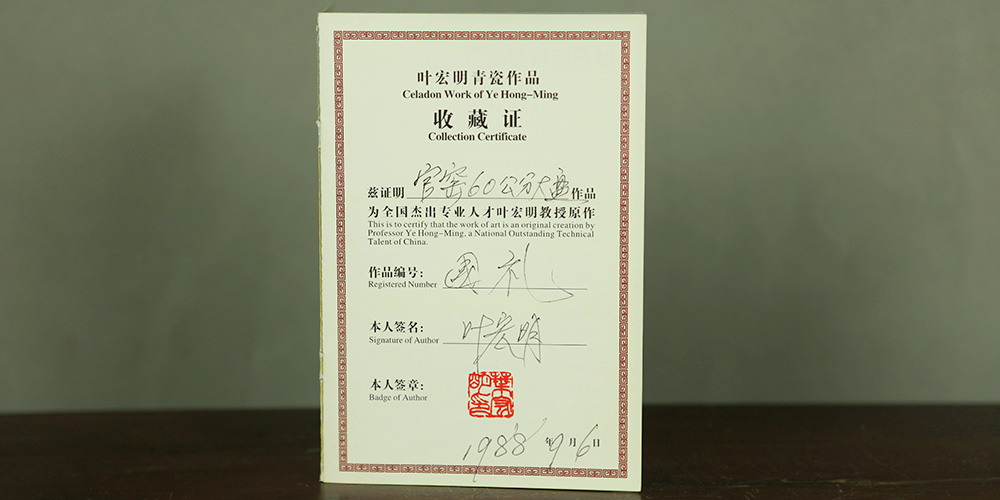 叶宏明青瓷作品
Celadon Work of Ye Hong-Ming
收藏证
Collection Certificate
兹证明 官窑60公分大盘 作品
为全国杰出专业人才叶宏明教授原作
This is to certify that the work of art is an original creation by
Professor Ye Hong-Ming, a National Outstanding Technical
Talent of China.
作品编号: 国礼
Registered Number
本人签名: 叶宏明
Signature of Author
本人签章:
Badge of Author
1988年9月6日